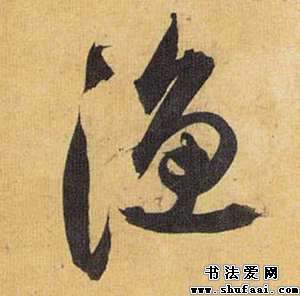 渔
书法爱网
www.shufaai.com